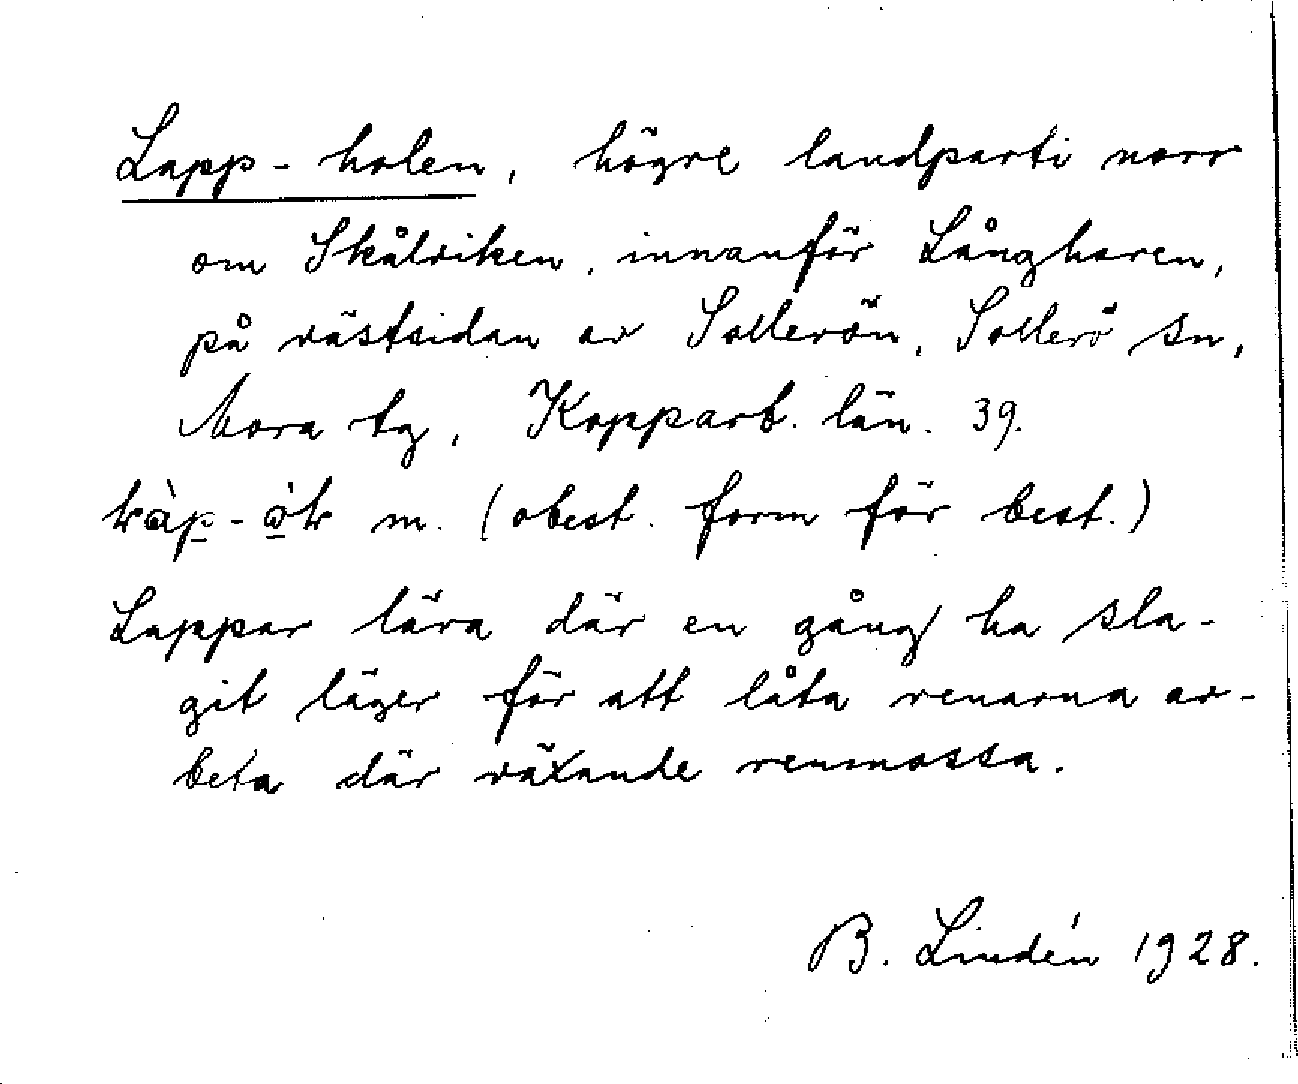 Lapp-holen, högre landparti norr
om Skålviken, innanför Långharen,
på västsidan av Sollerön, Sollerö sn,
Mora tg, Kopparb. län. 39.
m. (obest. form för best.)
Lappar lära där en gång ha sla-
git läger för att låta renarna av-
beta där växande renmossa.
B. Lindén 1928.